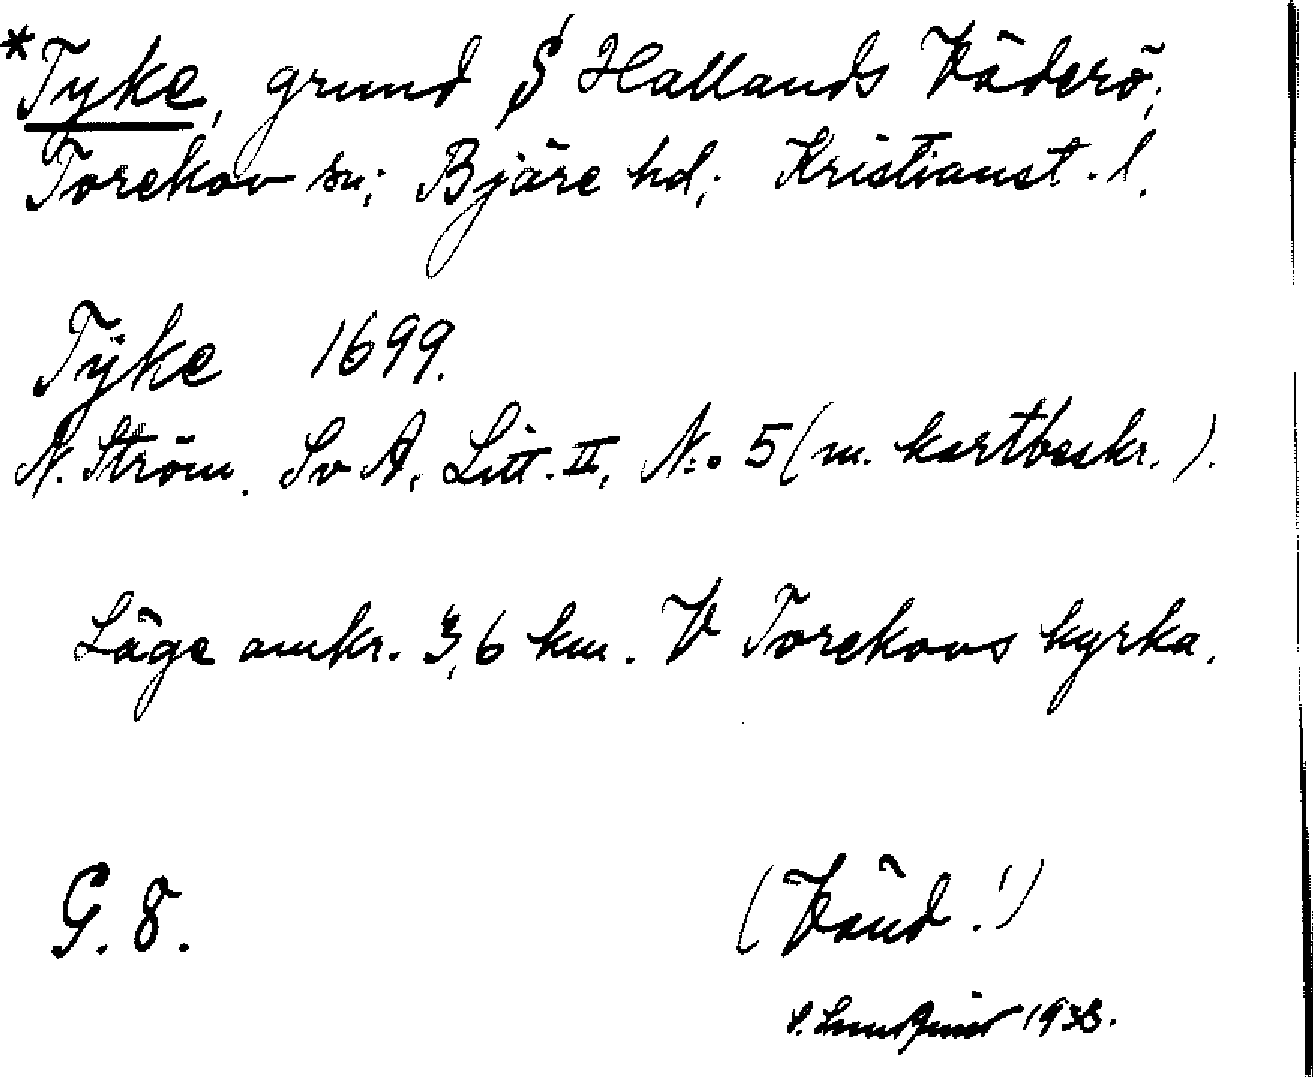 *Tyke, grund S Hallands Väderö;
Torekov sn; Bjäre hd; Kristianst. l.
Tÿke 1699.
N. Ström. SvA, Litt. II, N:o 5 (m. kartbeskr.).
Läge omkr. 3,6 km. V Torekovs kyrka.
G. 8.
(Vänd!)
1938.